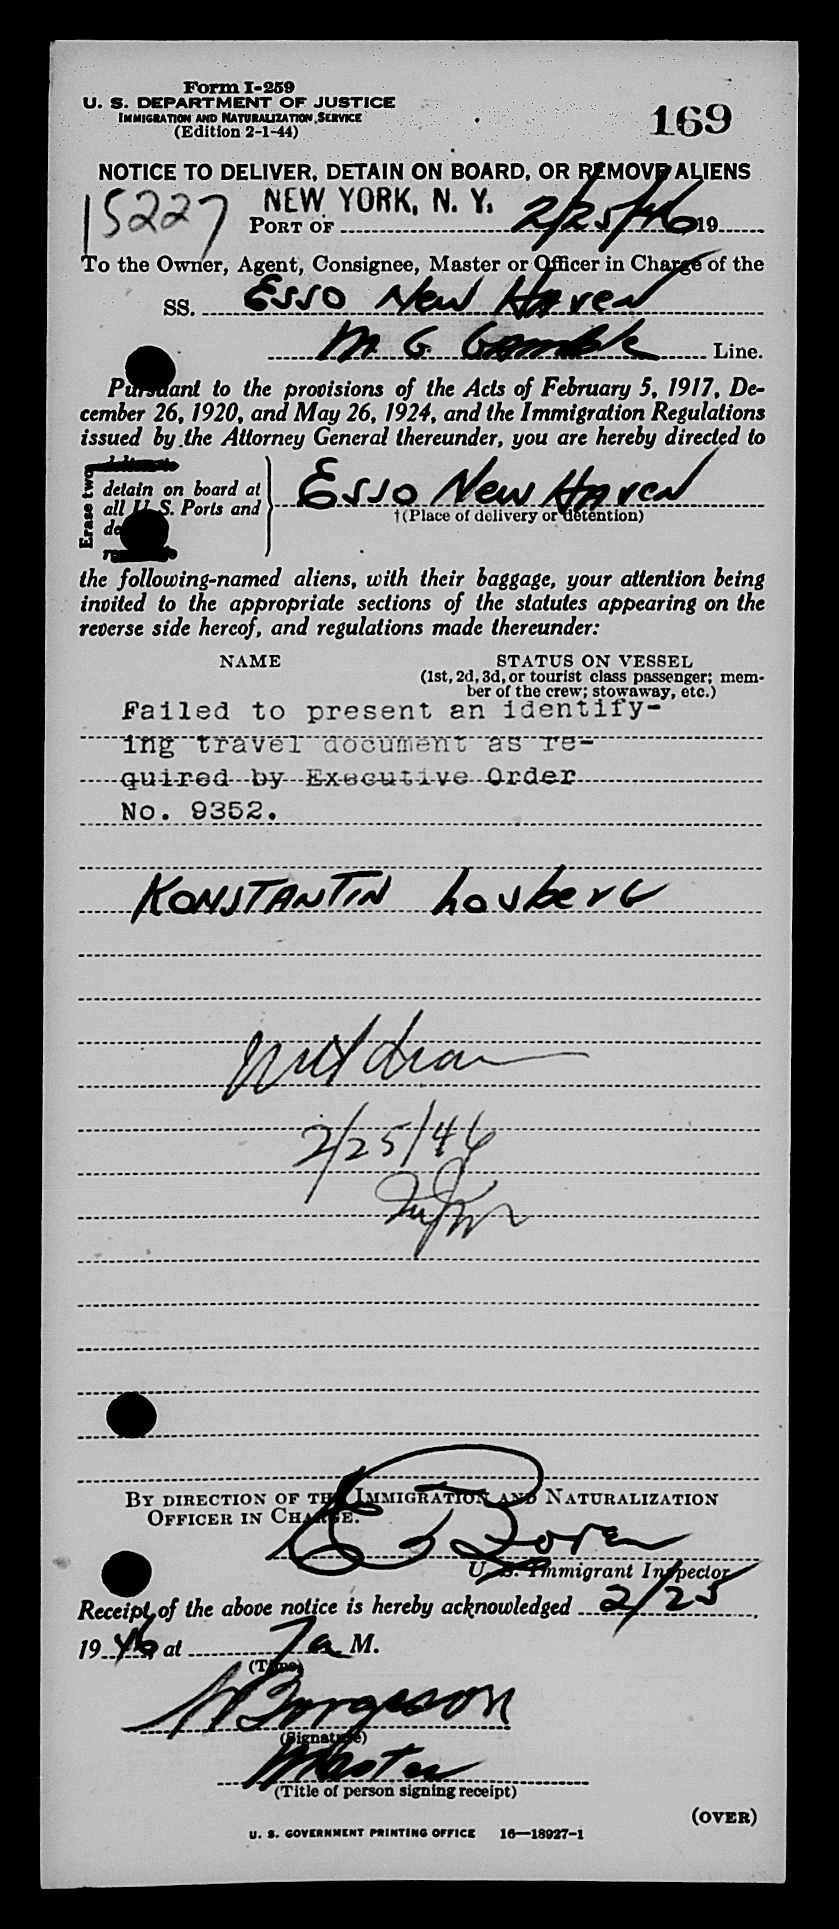 Form I-259
U. S. DEPARTMENT OF JUSTICE
IMMIGRATION AND NATURALIZATION SERVICE
(Edition 2-1-44)
169
NOTICE TO DELIVER, DETAIN ON BOARD, OR REMOVE ALIENS
15227 NEW YORK, N. Y. 2/25/46
PORT OF 19
To the Owner, Agent, Consignee, Master or Officer in Charge of the
SS. Esso New Haven
M. G. Gamble Line.
Pursuant to the provisions of the Acts of February 5, 1917, De-
cember 26, 1920, and May 26, 1924, and the Immigration Regulations
issued by the Attorney General thereunder, you are hereby directed to
Erase two
detain on board at
all U. S. Ports and
Esso New Haven
†(Place of delivery or detention)
the following-named aliens, with their baggage, your attention being
invited to the appropriate sections of the statutes appearing on the
reverse side hereof, and regulations made thereunder:
NAME STATUS ON VESSEL
(1st, 2d, 3d, or tourist class passenger; mem-
ber of the crew; stowaway, etc.)
Failed to present an identify-
ing travel document as re-
quired by Executive Order
No. 9352.
KONSTANTIN Lovberg
2/25/46
BY DIRECTION OF THE IMMIGRATION AND NATURALIZATION
OFFICER IN CHARGE.
U. S. Immigrant Inspector
Receipt of the above notice is hereby acknowledged 2/25,
1946, at 7 a M.
(Time)
(Signature)
Master
(Title of person signing receipt)
(OVER)
U. S. GOVERNMENT PRINTING OFFICE 16—18927-1